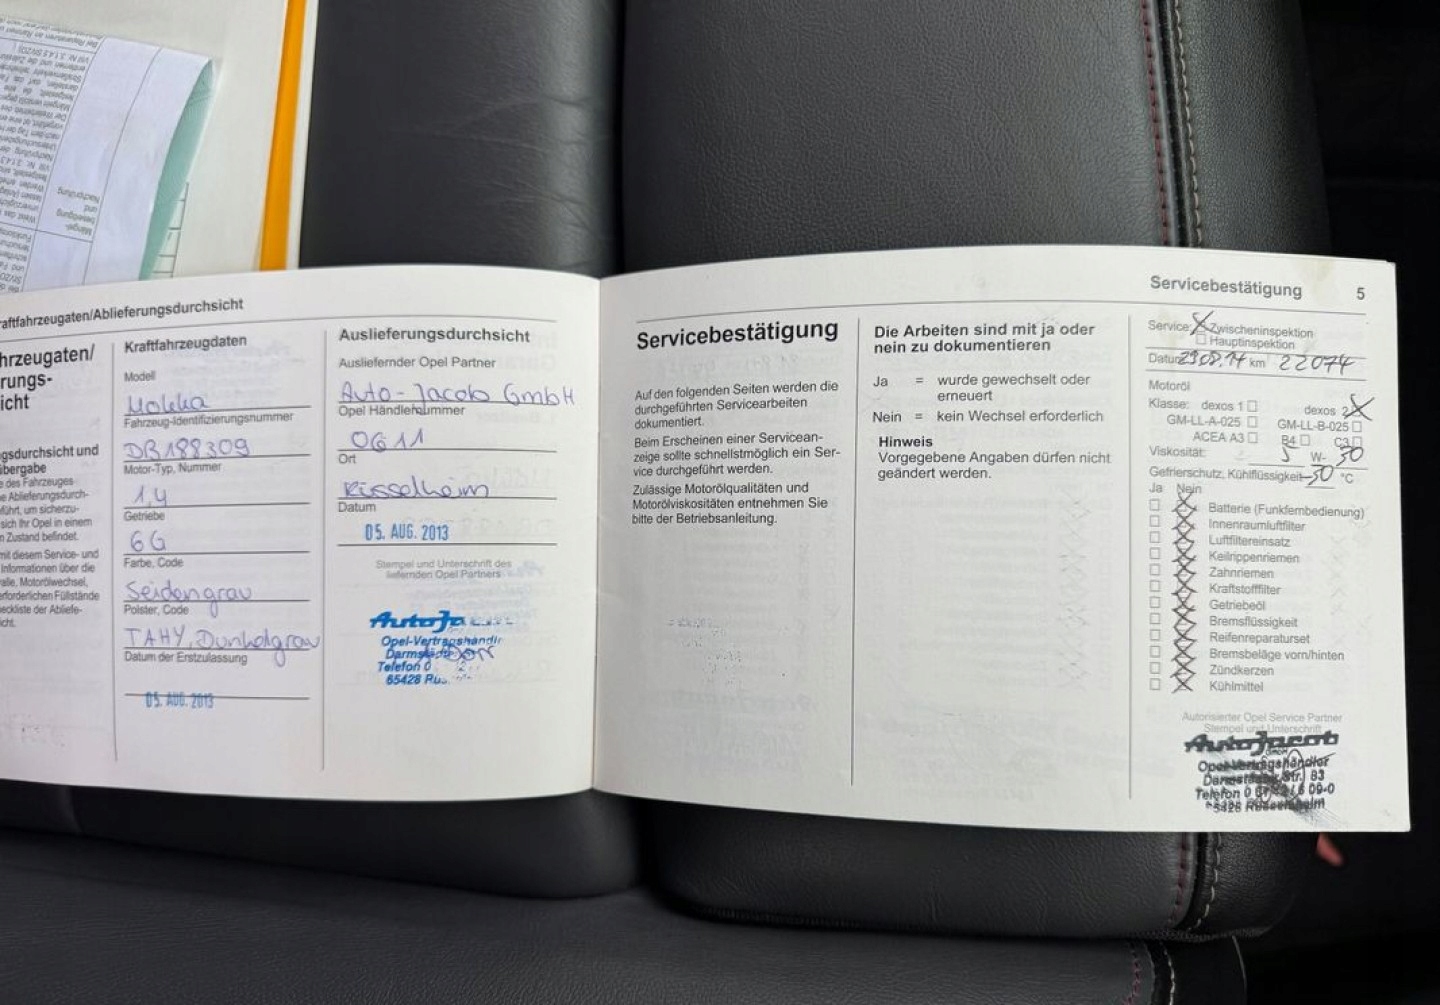 raftfahrzeugaten/Ablieferungsdurchsicht
hrzeugaten/
rungs-
icht
gsdurchsicht und
übergabe
e des Fahrzeuges
e Ablieferungsdurch-
führt, um sicherzu-
sich Ihr Opel in einem
n Zustand befindet.
mit diesem Service- und
Informationen über die
alle, Motorölwechsel,
erforderlichen Füllstände
eckliste der Abliefe-
icht.
Kraftfahrzeugdaten
Modell
Mokka
Fahrzeug-Identifizierungsnummer
DB188309
Motor-Typ, Nummer
1,4
Getriebe
6G
Farbe, Code
Seidengrau
Polster, Code
TAHY, Dunkelgrau
Datum der Erstzulassung
05. AUG. 2013
Auslieferungsdurchsicht
Ausliefernder Opel Partner
Auto-Jacob GmbH
Opel Händlernummer
0G11
Ort
Rüsselheim
Datum
05. AUG. 2013
Stempel und Unterschrift des
liefernden Opel Partners
AutoJa
Opel-Vertragshändler
Darmstädt
Telefon 0
65428 Rüs
Servicebestätigung 5
Servicebestätigung
Auf den folgenden Seiten werden die
durchgeführten Servicearbeiten
dokumentiert.
Beim Erscheinen einer Servicean-
zeige sollte schnellstmöglich ein Ser-
vice durchgeführt werden.
Zulässige Motorölqualitäten und
Motorölviskositäten entnehmen Sie
bitte der Betriebsanleitung.
Die Arbeiten sind mit ja oder
nein zu dokumentieren
Ja = wurde gewechselt oder
erneuert
Nein = kein Wechsel erforderlich
Hinweis
Vorgegebene Angaben dürfen nicht
geändert werden.
Service: Zwischeninspektion
Hauptinspektion
Datum 29.08.14 km 22074
Motoröl
Klasse: dexos 1 dexos 2
GM-LL-A-025 GM-LL-B-025
ACEA A3 B4 C3
Viskosität: 5 W- 30
Gefrierschutz, Kühlflüssigkeit -50 °C
Ja Nein
Batterie (Funkfernbedienung)
Innenraumluftfilter
Luftfiltereinsatz
Keilrippenriemen
Zahnriemen
Kraftstofffilter
Getriebeöl
Bremsflüssigkeit
Reifenreparaturset
Bremsbeläge vorn/hinten
Zündkerzen
Kühlmittel
Autorisierter Opel Service Partner
Stempel und Unterschrift
AutoJacob
GmbH
Opel-Vertragshändler
Darmstädter Str. 83
Telefon 0
65428 Rüsselsheim